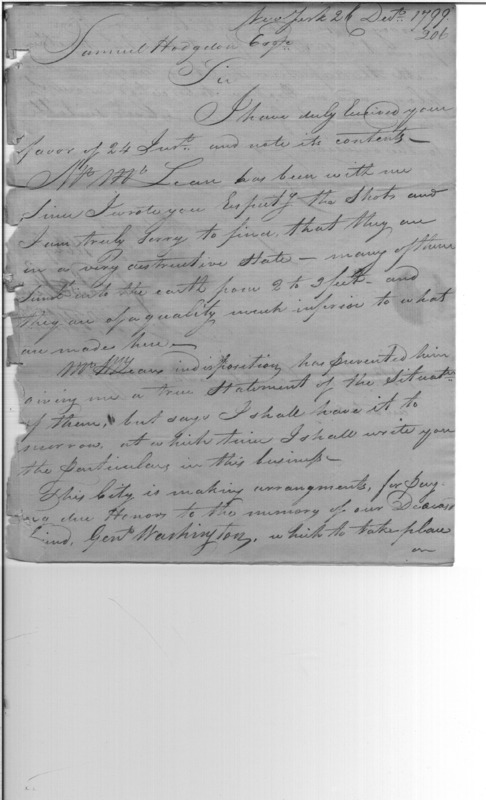 New York 26 Decr. 1799
206
Samuel Hodgdon Esqr.
Sir
I have duly Received your
favor of 24 Inst. and note its contents –
Mr. Mc Lean has been with me
Since I wrote you Respectg the Shots and
I am truly Sorry to find that they are
in a very destructive State – many of them
Sunk into the earth from 2 to 3 feet – and
they are of a quality much inferior to what
are made here –
Mr. McLeans indisposition has prevented him
giving me a true Statment of the Situatn.
of them, but says I shall have it to
morrow, at which time I shall write you
the particulars in this business –
This City is making arrangments, for pay
ing due Honors to the memory of our Deceasd
Genl. Washington, which to take place
on